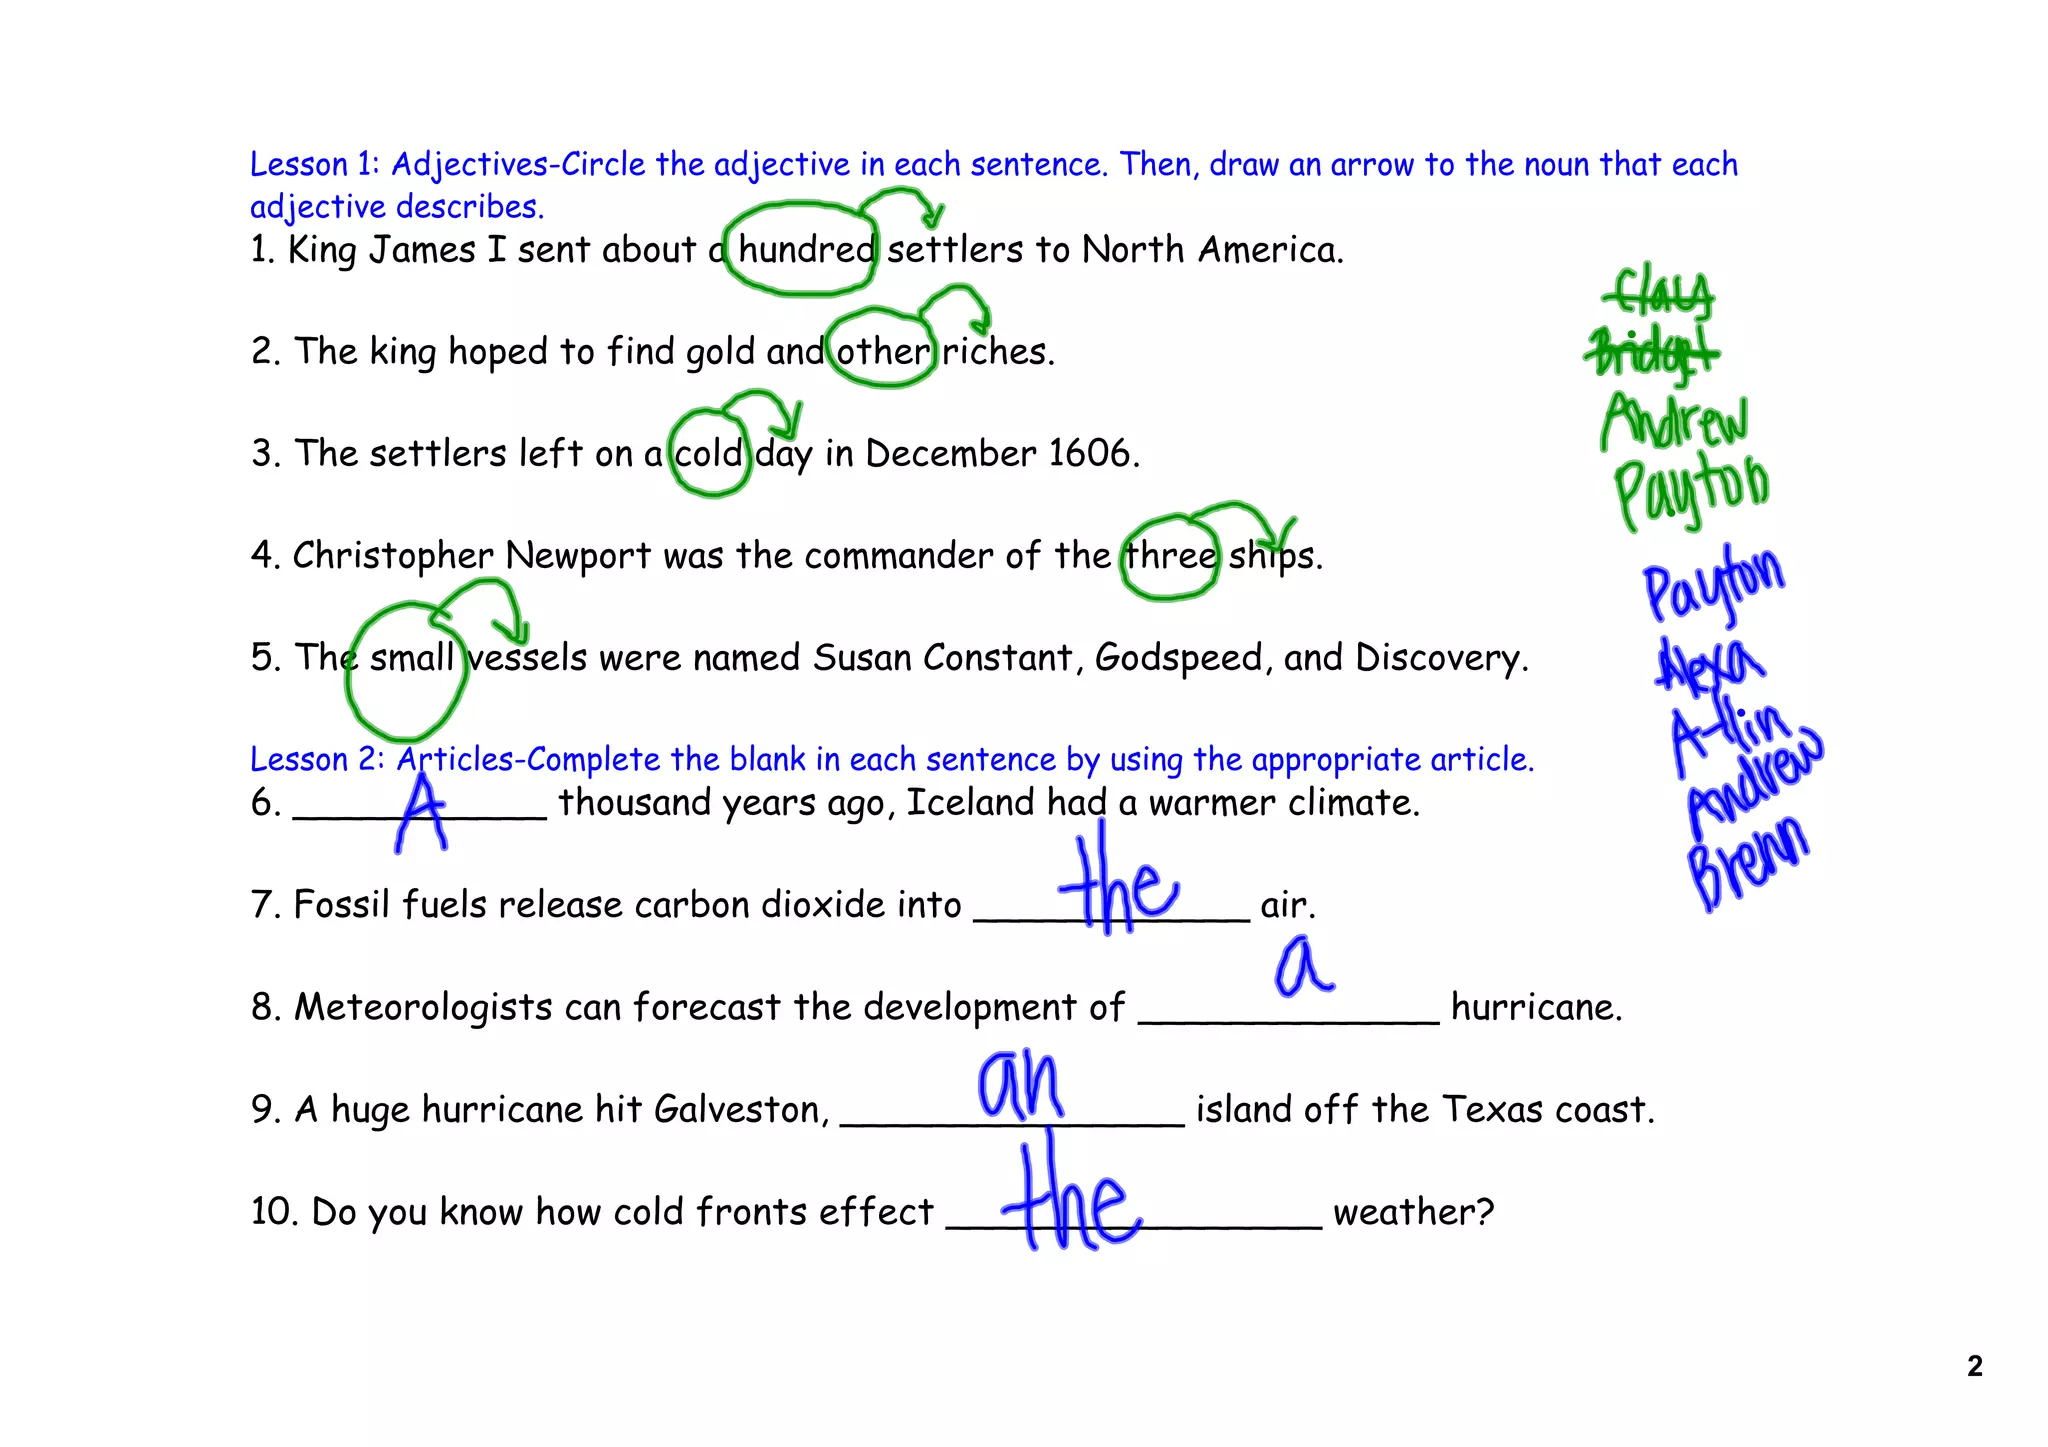 Lesson 1: Adjectives-Circle the adjective in each sentence. Then, draw an arrow to the noun that each
adjective describes.
1. King James I sent about a hundred settlers to North America.
Clay
Bridget
2. The king hoped to find gold and other riches.
Andrew
3. The settlers left on a cold day in December 1606.
Payton
4. Christopher Newport was the commander of the three ships.
Payton
5. The small vessels were named Susan Constant, Godspeed, and Discovery.
Alexa
Lesson 2: Articles-Complete the blank in each sentence by using the appropriate article.
Andrew
6. ___________ A thousand years ago, Iceland had a warmer climate.
Brenn
7. Fossil fuels release carbon dioxide into ____________ the air.
8. Meteorologists can forecast the development of _____________ a hurricane.
9. A huge hurricane hit Galveston, _______________ an island off the Texas coast.
10. Do you know how cold fronts effect ________________ the weather?
2